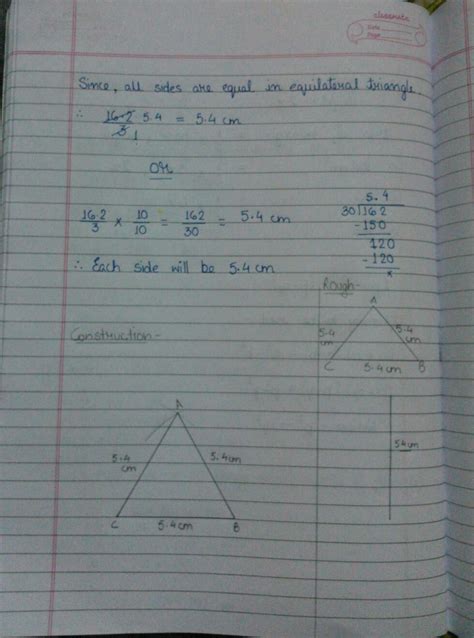 classmate
Date
Page
Since, all sides are equal in equilateral triangle
∴ 16.2/3 5.4 = 5.4 cm
1
OR
16.2/3 × 10/10 = 162/30 = 5.4 cm
5.4
30)162
-150
120
-120
x
∴ Each side will be 5.4 cm
Rough-
A
5.4 cm
5.4 cm
C
B
5.4 cm
Construction-
A
5.4 cm
5.4 cm
C
5.4 cm
B
5.4cm